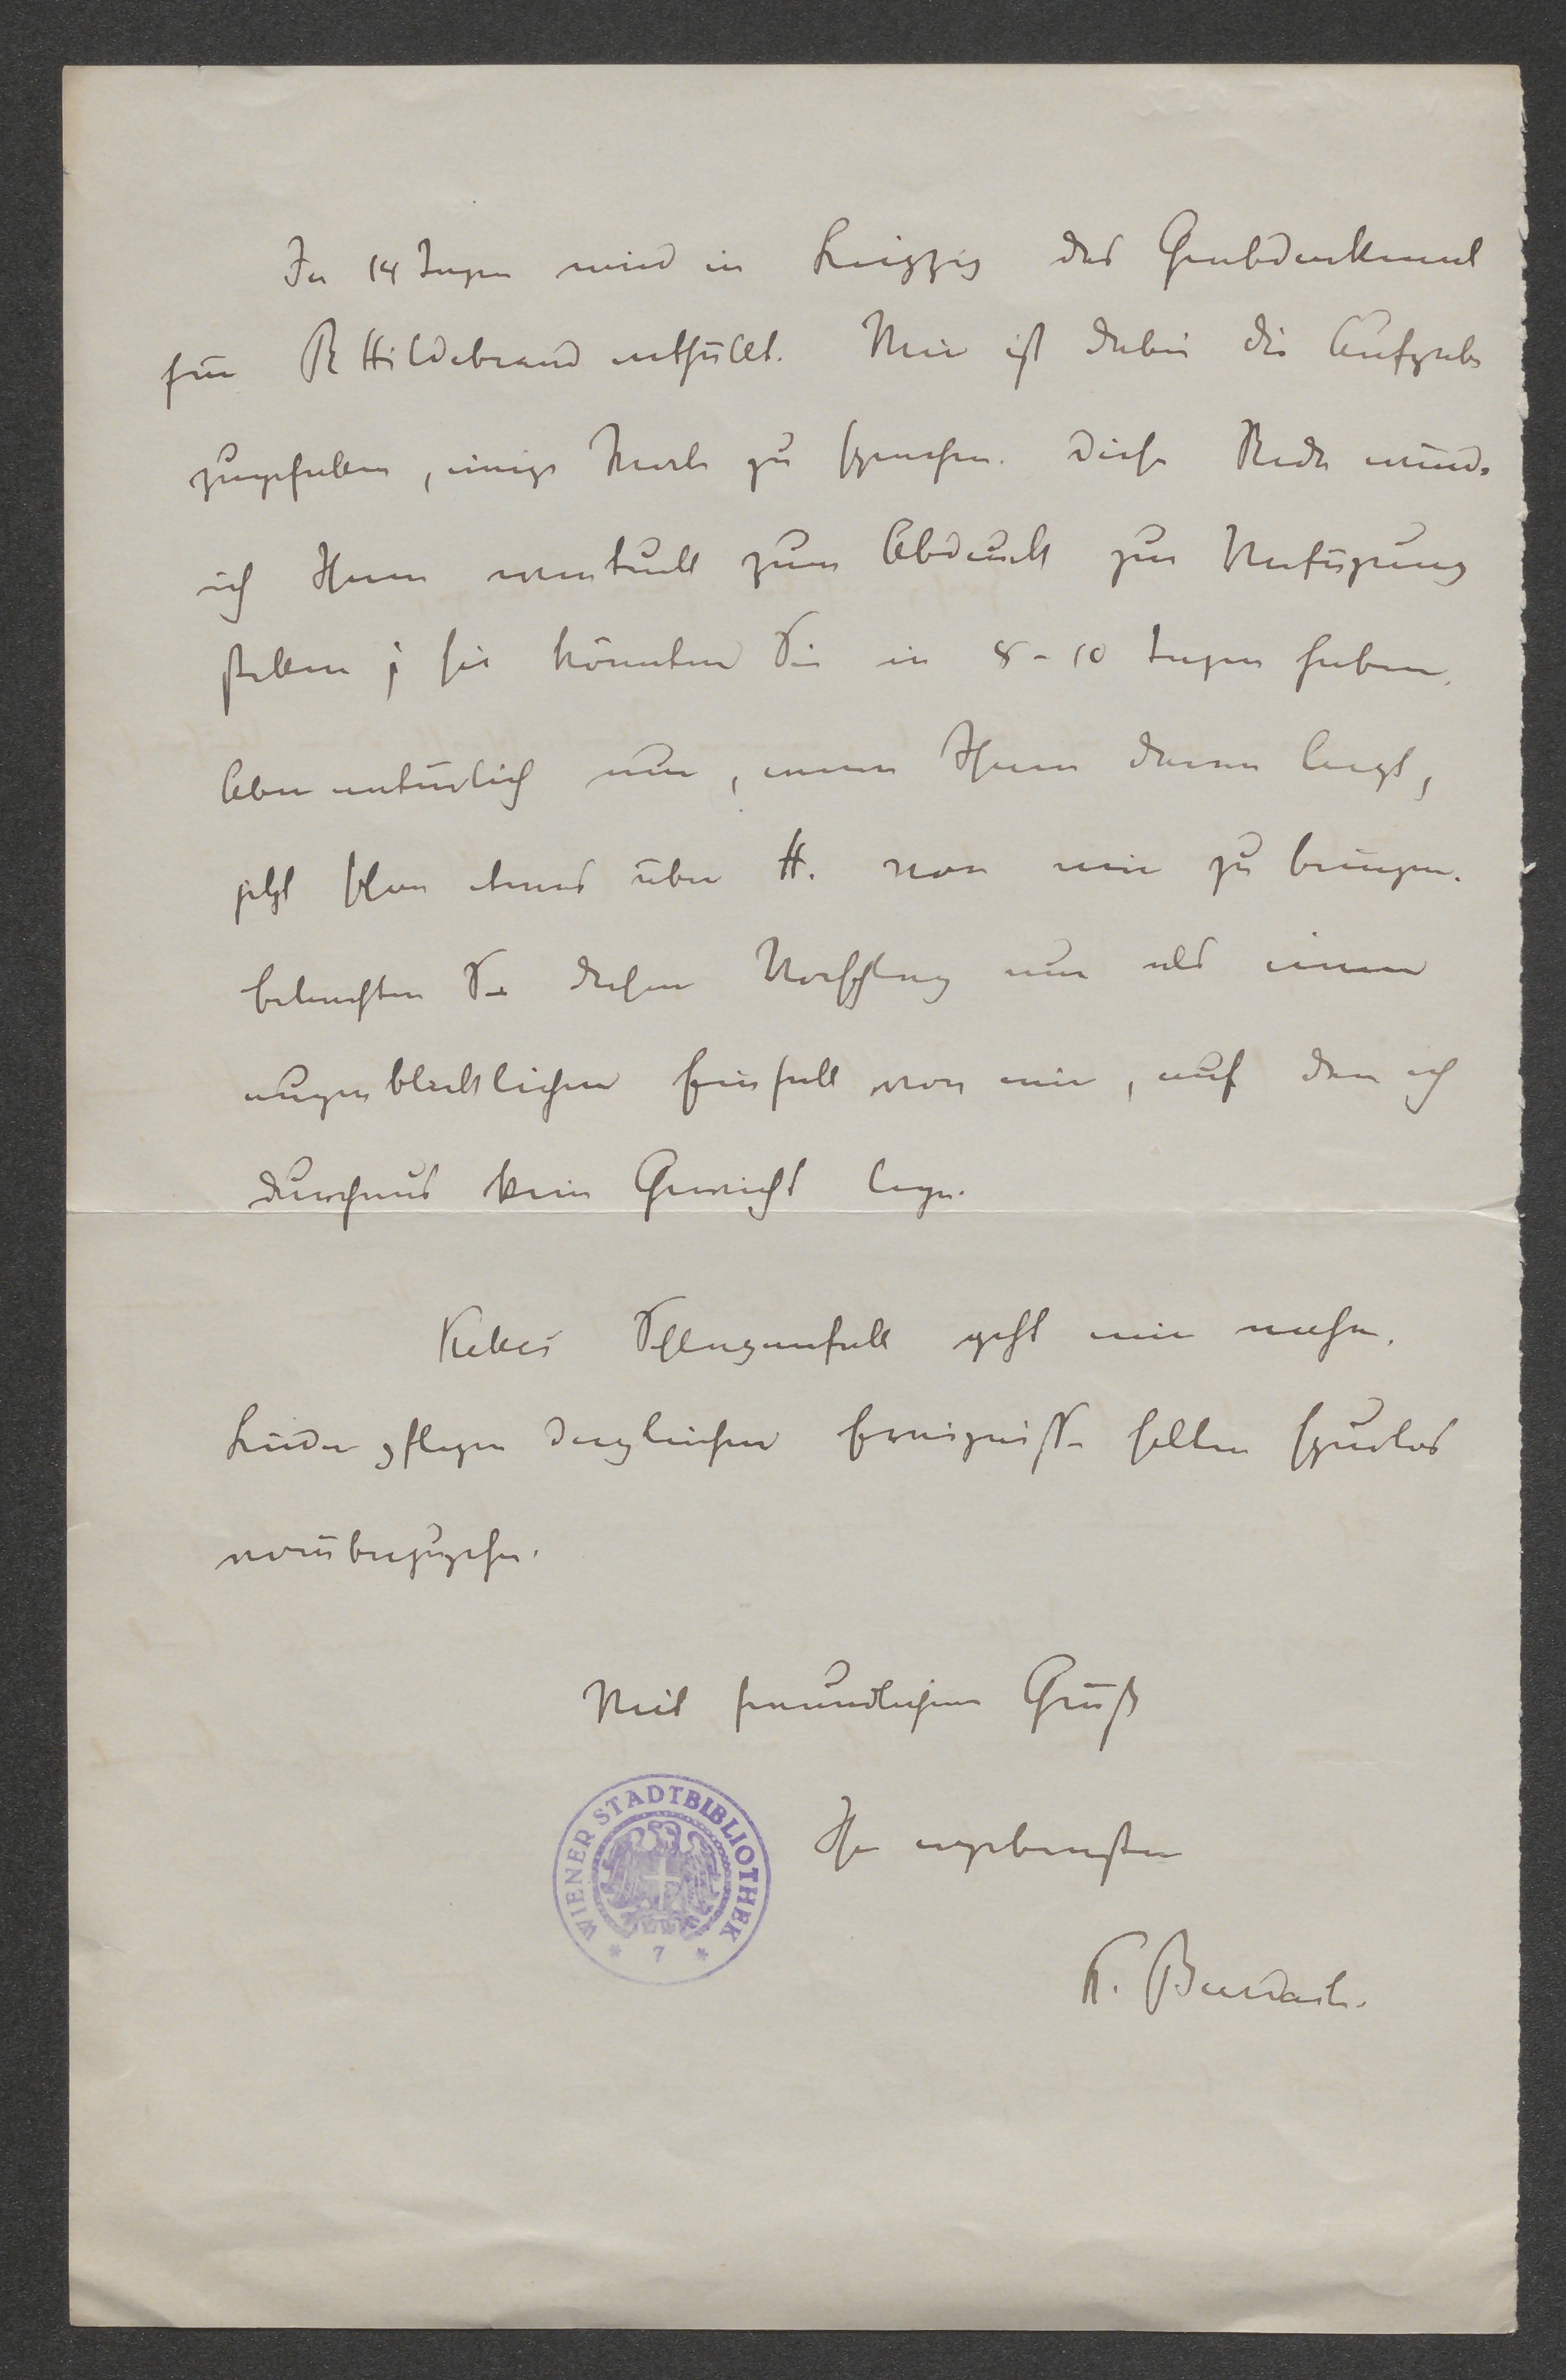 In 14 Tagen wird in Leipzig das Grabdenkmal
für R Hildebrand enthüllt. Mir ist dabei die Aufgabe
zugefallen, einige Worte zu sprechen. Diese Rede würde
ich Ihnen eventuell zum Abdruck zur Verfügung
stellen; sie könnten Sie in 8-10 Tagen haben.
Aber natürlich nur, wenn Ihnen daran liegt,
jetzt schon etwas über H. von mir zu bringen.
Betrachten Sie diesen Vorschlag nur als einen
augenblicklichen Einfall von mir, auf den ich
durchaus kein Gewicht lege.
Schlaganfall geht mir nahe.
Leider pflegen dergleichen Ereignisse selten spurlos
vorüberzugehn.
Mit freundlichem Gruß
Ihr ergebenster
K. Burdach.
WIENER STADTBIBLIOTHEK
* 7 *